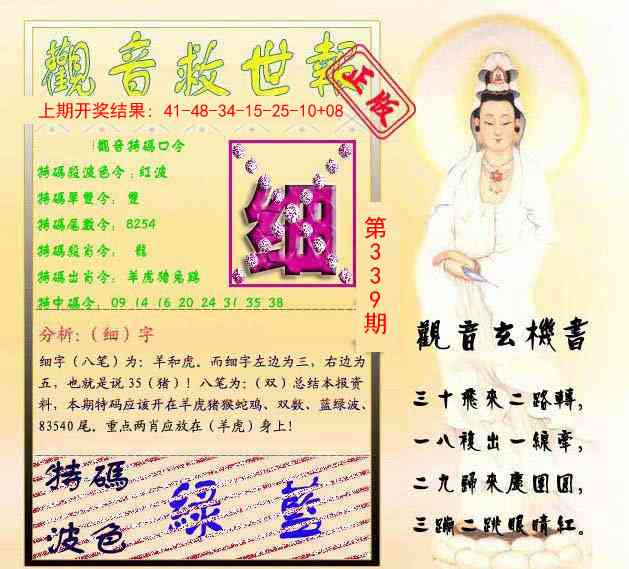 觀音救世報
正版
上期开奖结果：41-48-34-15-25-10+08
觀音特碼口令
特碼殺波色令：红波
特碼單雙令： 雙
特碼尾數令：8254
特碼殺肖令： 龍
特碼出肖令：羊虎猪兔鷄
特中碼令：09 14 16 20 24 31 35 38
细
第339期
分析：（细）字
细字（八笔）为：羊和虎。而细字左边为三，右边为
五，也就是说 35（猪）！八笔为：（双）总结本报资
料，本期特码应该开在羊虎猪猴蛇鸡、双数、蓝绿波、
83540 尾。重点两肖应放在（羊虎）身上！
特碼
波色
綠 藍
觀音玄機書
三十飛來二路轉，
一八複出一線牽，
二九歸來慶團圓，
三蹦二跳眼睛紅。